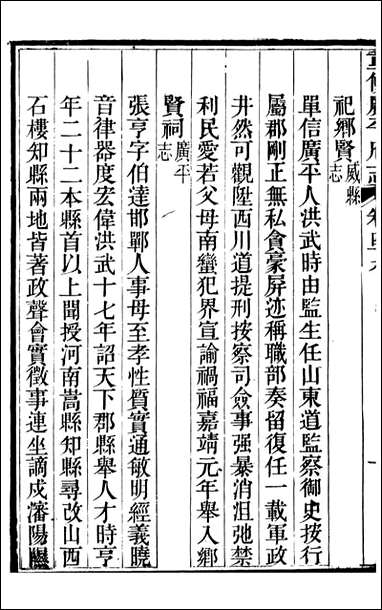 重修廣平府志　卷
祀鄉賢威縣志
單信廣平人洪武時由監生任山東道監察御史按行
屬郡剛正無私貪豪屏迹稱職部奏留復任一載軍政
井然可觀陞西川道提刑按察司僉事强暴消沮弛禁
利民愛若父母南蠻犯界宣諭禍福嘉靖元年舉入鄉
賢祠廣平志
張亨字伯達邯鄲人事母至孝性質實通敏明經義曉
音律器度宏偉洪武十七年詔天下郡縣舉人才時亨
年二十二本縣首以上聞授河南嵩縣知縣尋改山西
石樓知縣兩地皆著政聲會實徵事連坐謫戍瀋陽